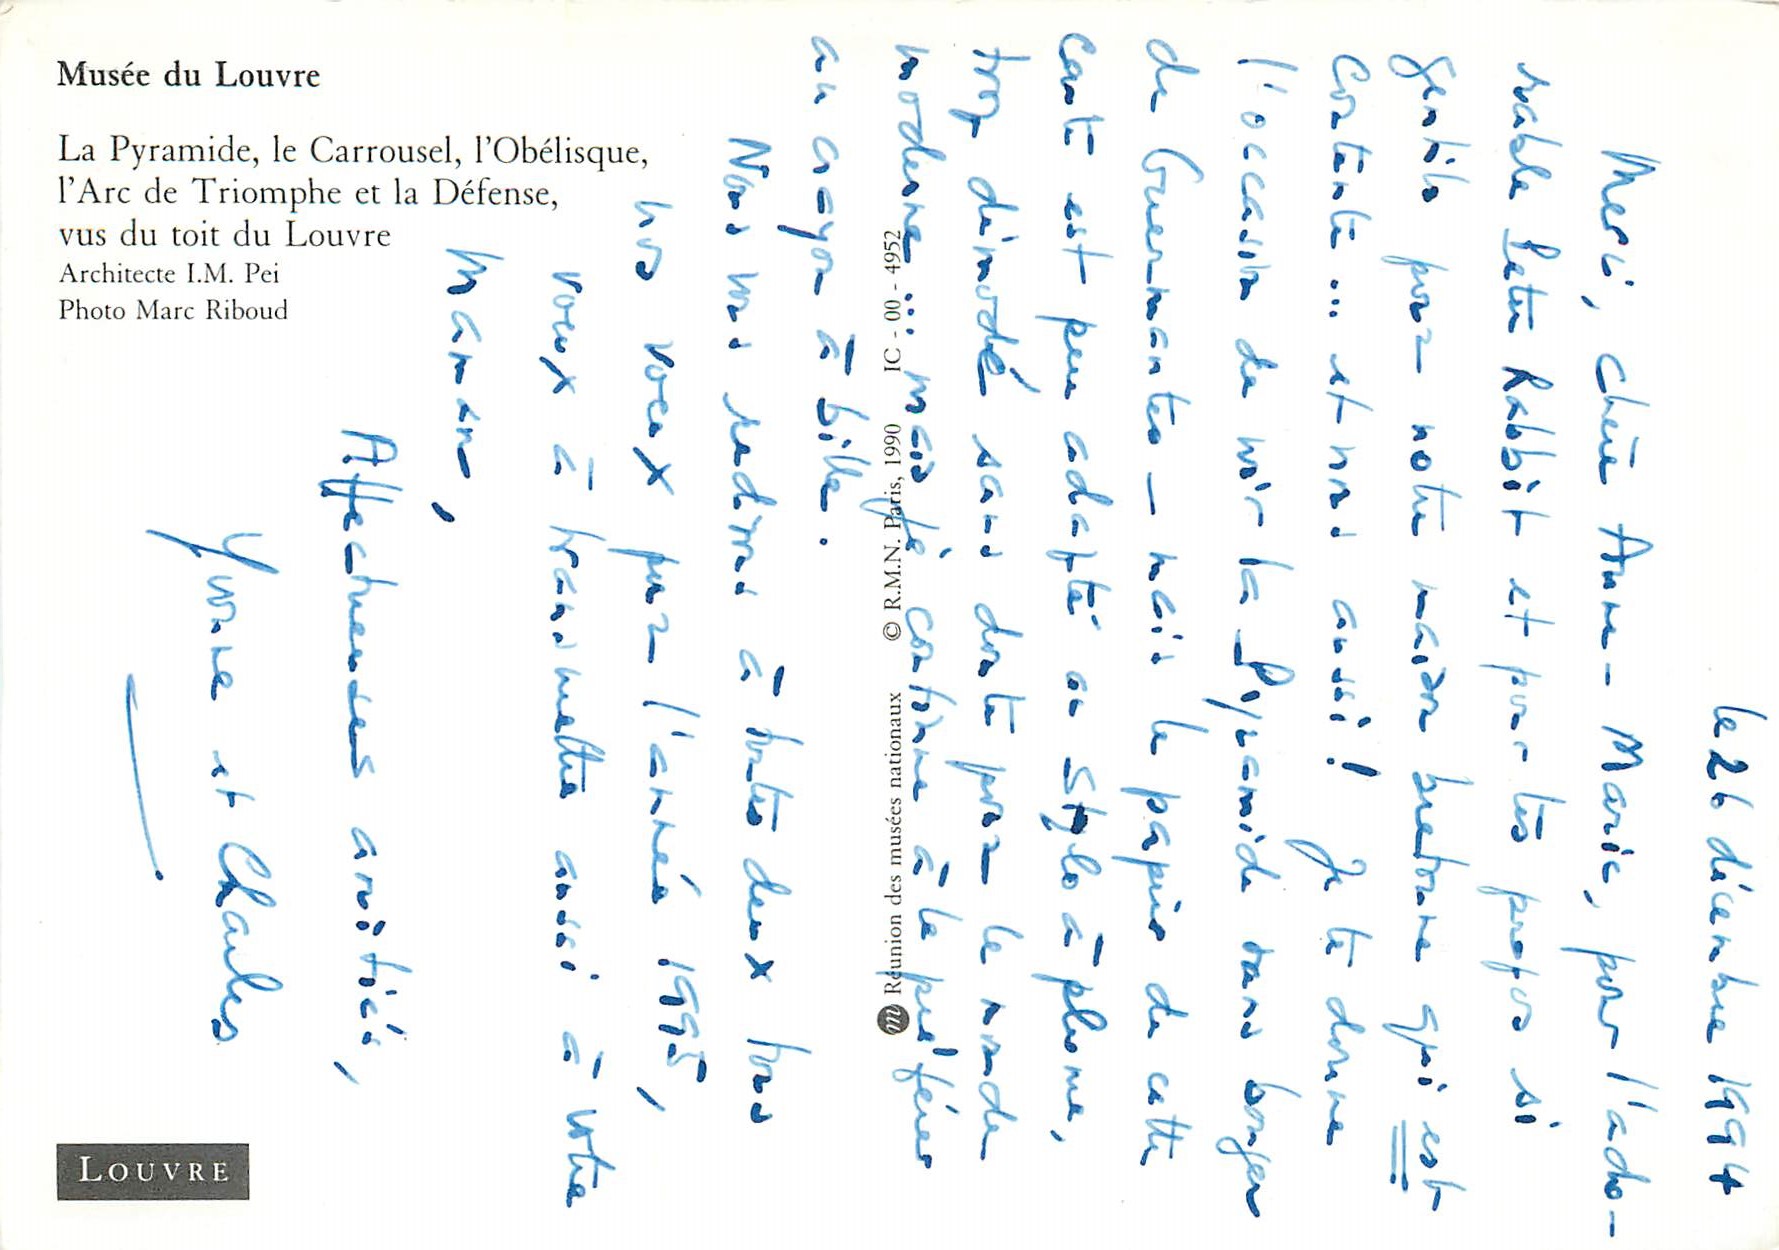 Musée du Louvre
La Pyramide, le Carrousel, l'Obélisque,
l'Arc de Triomphe et la Défense,
vus du toit du Louvre
Architecte I.M. Pei
Photo Marc Riboud
LOUVRE
m Réunion des musées nationaux © R.M.N. Paris, 1990 IC - 00 - 4952
le 26 décembre 1994
Merci, chère Anne-Marie, pour l'ado-
rable Peter Rabbit et pour tes propos si
gentils pour notre maison bretonne qui est
contente... et nous aussi! Je te donne
l'occasion de voir la Pyramide sans bouger
de Guermantes - mais le papier de cette
carte est peu adapté au stylo à plume,
trop démodé sans doute pour le monde
moderne... mais je continue à le préférer
au crayon à bille.
Nous vous redisons à toutes deux tous
nos voeux pour l'année 1995,
voeux à transmettre aussi à votre
Maman,
Affectueuses amitiés,
Yvonne et Charles